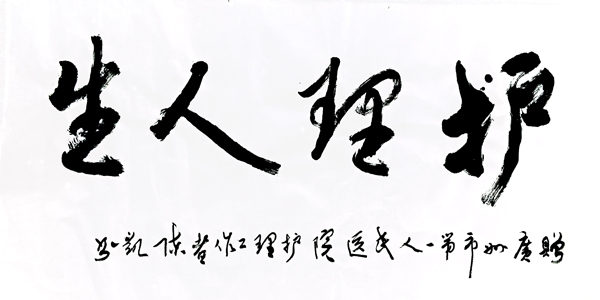 护理人生
赠廣州市第一人民医院护理工作者陈凱书